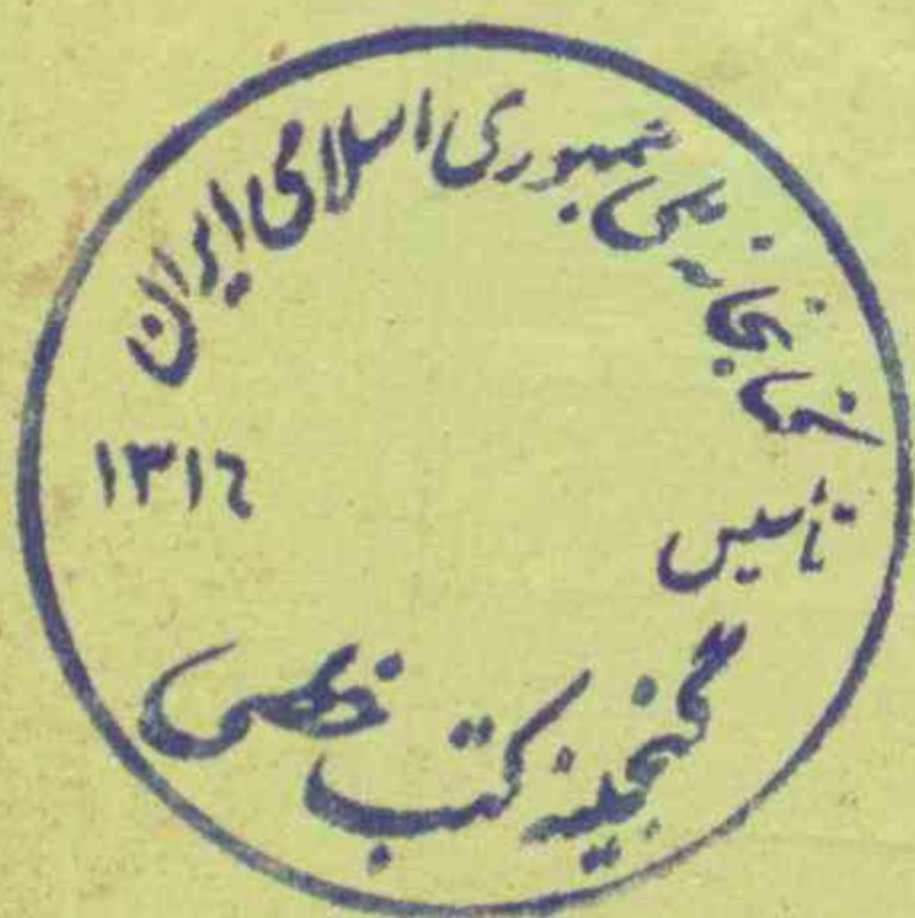 کتابخانه ملی جمهوری اسلامی ایران
تأسیس
۱۳۱۶
گنجینه کتب خطی